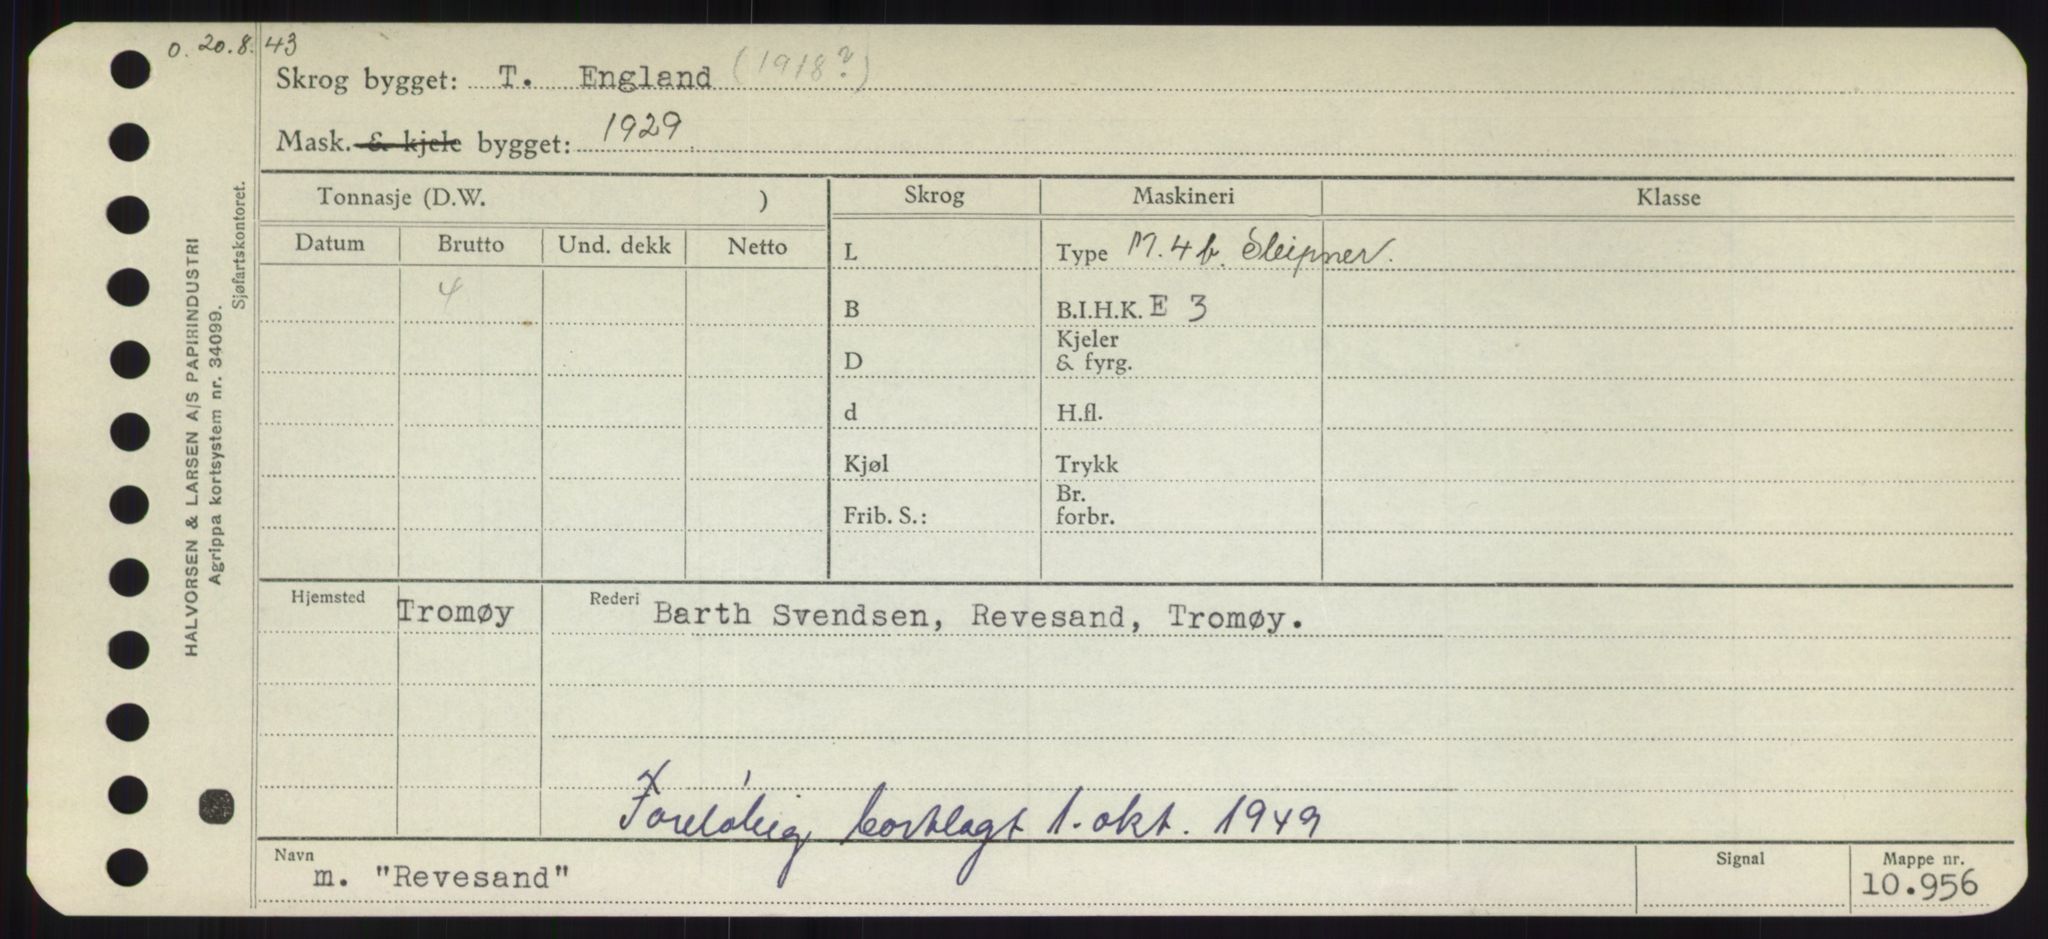 o. 20.8.43
Skrog bygget: T. England (1918?)
Mask. & kjele bygget: 1929
Tonnasje (D.W. )
Skrog Maskineri Klasse
Datum Brutto Und. dekk Netto
L Type M. 4 b. Sleipner.
4
B B.I.H.K. E 3
Kjeler
D & fyrg.
d H.fl.
Kjøl Trykk
Br.
Frib. S.: forbr.
Hjemsted Tromøy Rederi Barth Svendsen, Revesand, Tromøy.
Foreløbig bortlagt 1. okt. 1949
Navn Signal Mappe nr.
m. "Revesand" 10.956
HALVORSEN & LARSEN A/S PAPIRINDUSTRI
Agrippa kortsystem nr. 34099.
Sjøfartskontoret.